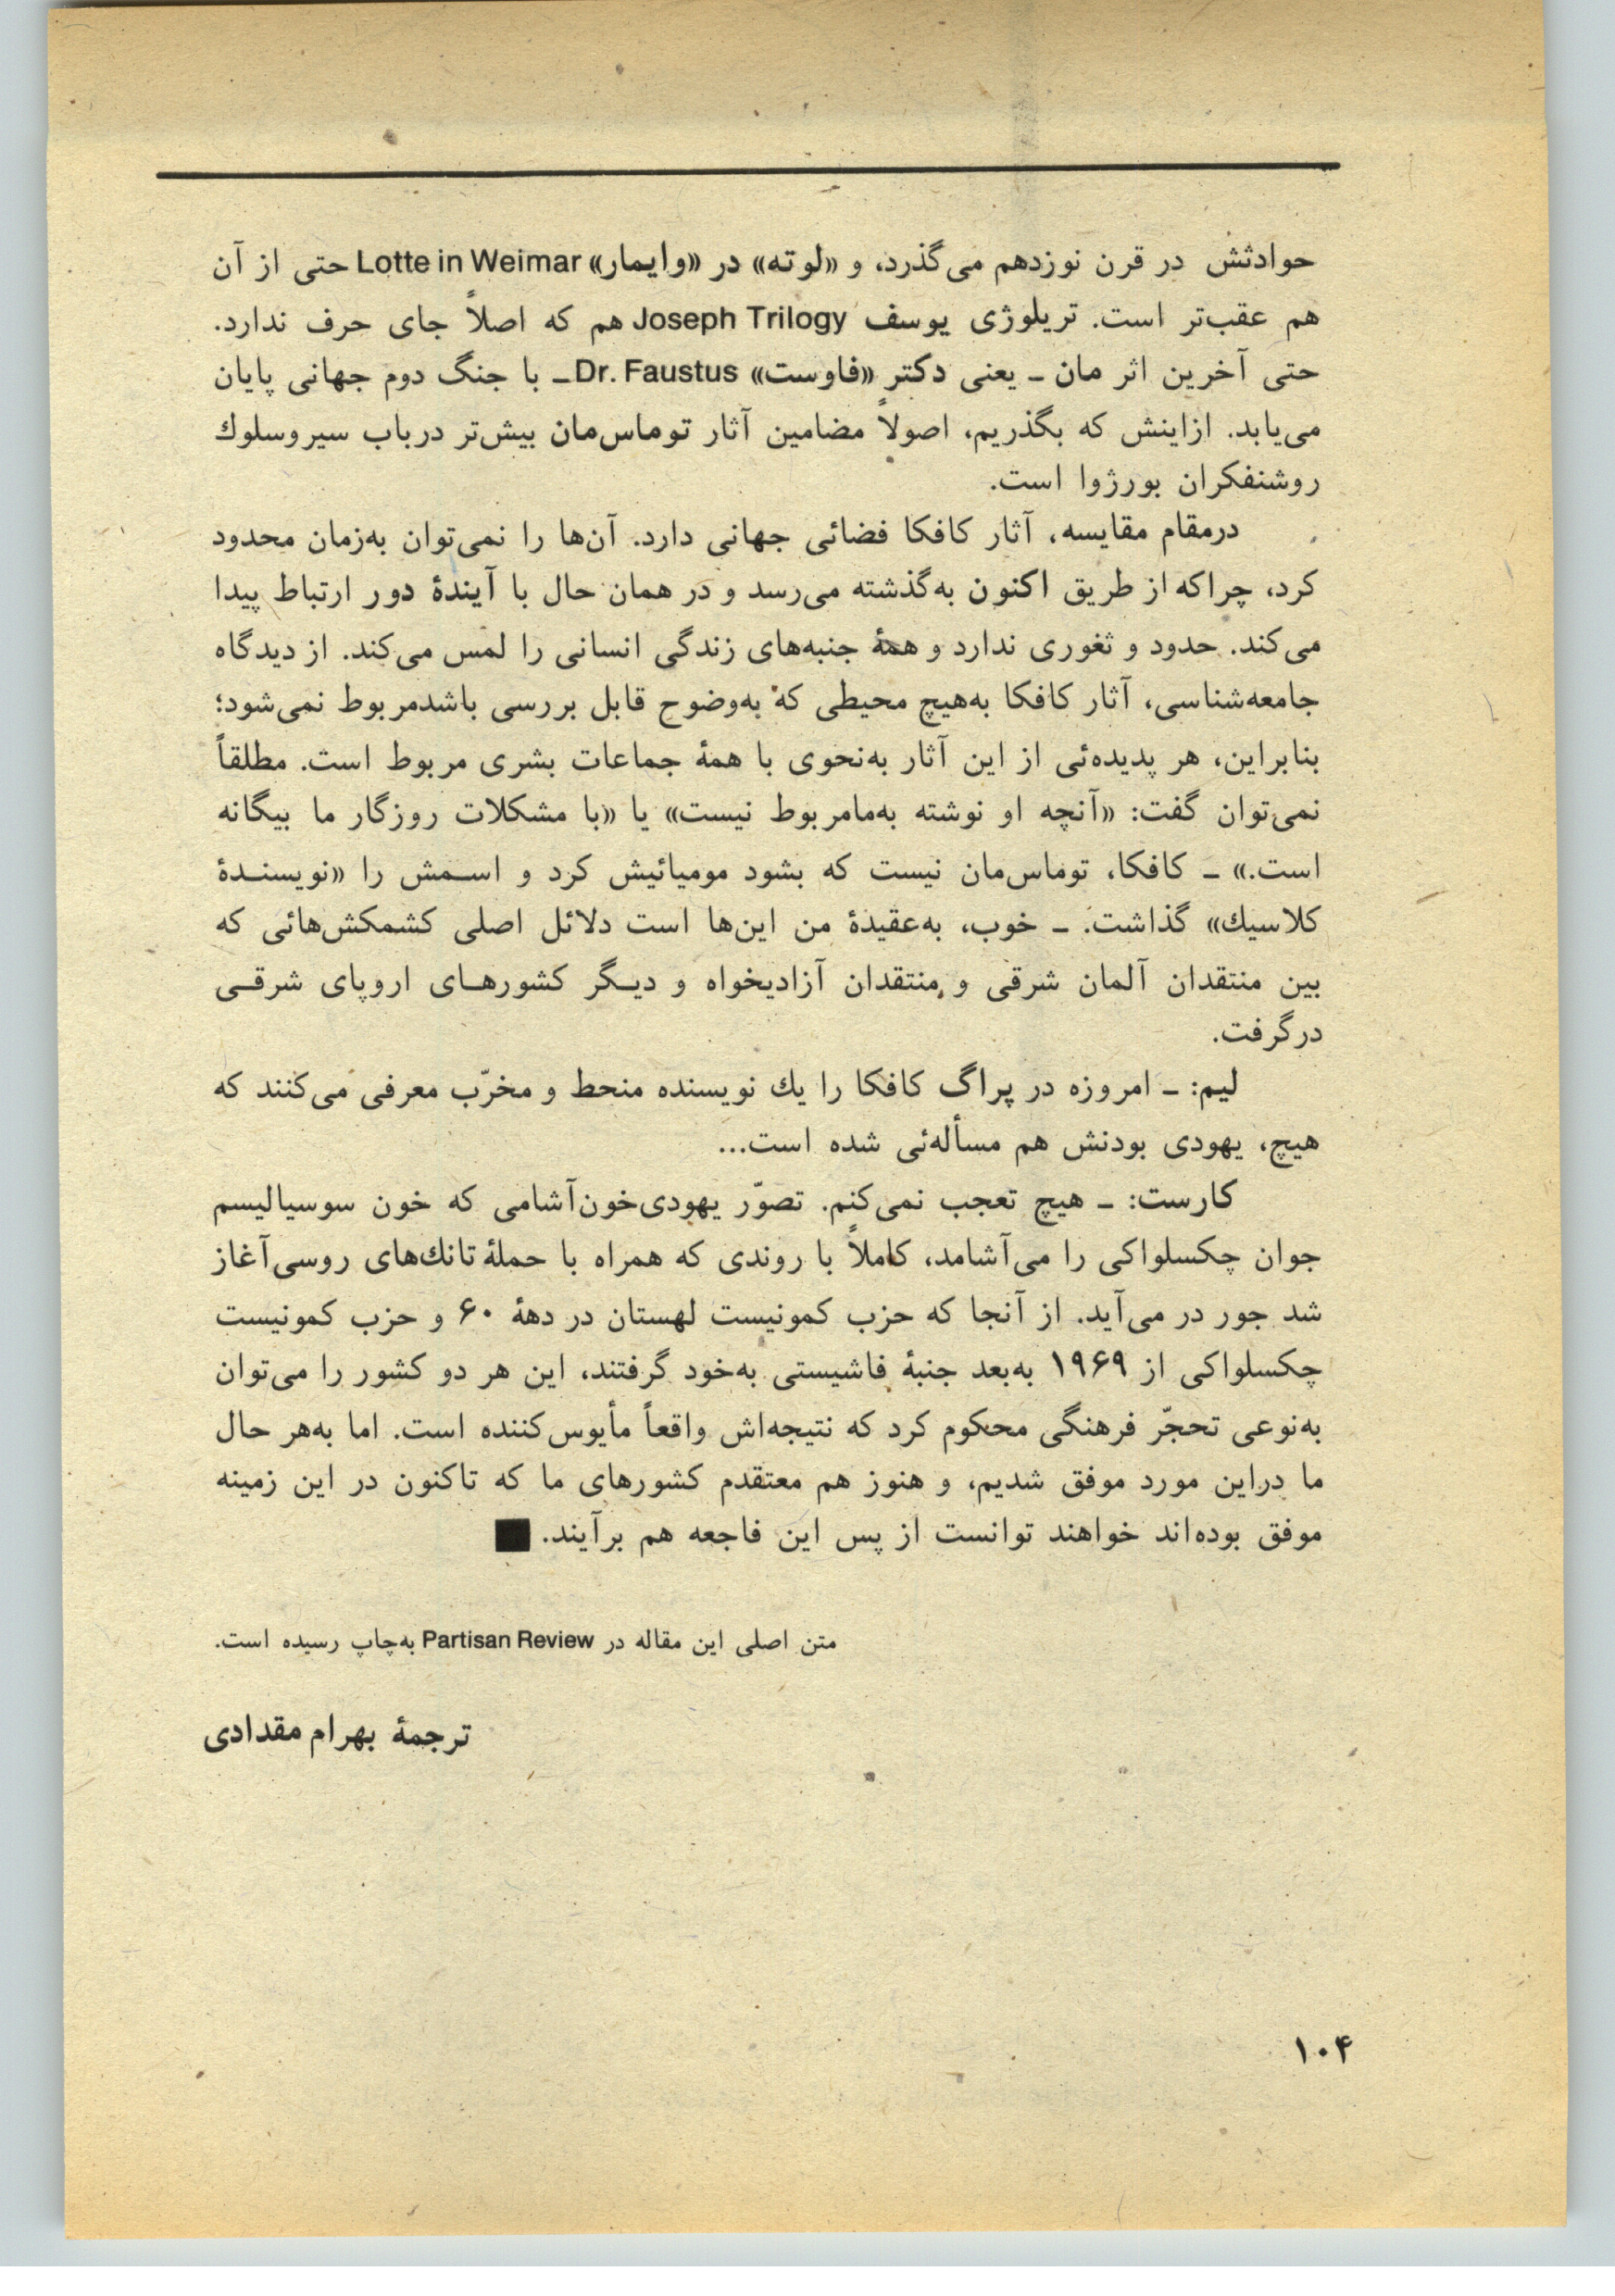 حوادثش در قرن نوزدهم می‌گذرد، و «لوته» در «وایمار» Lotte in Weimar حتی از آن
هم عقب‌تر است. تریلوژی یوسف Joseph Trilogy هم که اصلاً جای حرف ندارد.
حتی آخرین اثر مان ـ یعنی دکتر «فاوست» Dr. Faustus ـ با جنگ دوم جهانی پایان
می‌یابد. ازاینش که بگذریم، اصولاً مضامین آثار توماس‌مان بیش‌تر درباب سیروسلوك
روشنفکران بورژوا است.
درمقام مقایسه، آثار کافکا فضائی جهانی دارد. آن‌ها را نمی‌توان به‌زمان محدود
کرد، چراکه از طریق اکنون به‌گذشته می‌رسد و در همان حال با آیندهٔ دور ارتباط پیدا
می‌کند. حدود و ثغوری ندارد و همهٔ جنبه‌های زندگی انسانی را لمس می‌کند. از دیدگاه
جامعه‌شناسی، آثار کافکا به‌هیچ محیطی که به‌وضوح قابل بررسی باشدمربوط نمی‌شود؛
بنابراین، هر پدیده‌ئی از این آثار به‌نحوی با همهٔ جماعات بشری مربوط است. مطلقاً
نمی‌توان گفت: «آنچه او نوشته به‌مامربوط نیست» یا «با مشکلات روزگار ما بیگانه
است.» ـ کافکا، توماس‌مان نیست که بشود مومیائیش کرد و اسـمش را «نویسنـدهٔ
کلاسیك» گذاشت. ـ خوب، به‌عقیدهٔ من این‌ها است دلائل اصلی کشمکش‌هائی که
بین منتقدان آلمان شرقی و منتقدان آزادیخواه و دیـگر کشورهـای اروپای شرقـی
درگرفت.
لیم: ـ امروزه در پراگ کافکا را یك نویسنده منحط و مخرّب معرفی می‌کنند که
هیچ، یهودی بودنش هم مسأله‌ئی شده است...
کارست: ـ هیچ تعجب نمی‌کنم. تصوّر یهودی‌خون‌آشامی که خون سوسیالیسم
جوان چکسلواکی را می‌آشامد، کاملاً با روندی که همراه با حملهٔ تانك‌های روسی‌آغاز
شد جور در می‌آید. از آنجا که حزب کمونیست لهستان در دههٔ ۶۰ و حزب کمونیست
چکسلواکی از ۱۹۶۹ به‌بعد جنبهٔ فاشیستی به‌خود گرفتند، این هر دو کشور را می‌توان
به‌نوعی تحجّر فرهنگی محکوم کرد که نتیجه‌اش واقعاً مأیوس‌کننده است. اما به‌هر حال
ما دراین مورد موفق شدیم، و هنوز هم معتقدم کشورهای ما که تاکنون در این زمینه
موفق بوده‌اند خواهند توانست از پس این فاجعه هم برآیند. ■
متن اصلی این مقاله در Partisan Review به‌چاپ رسیده است.
ترجمهٔ بهرام مقدادی
۱۰۴